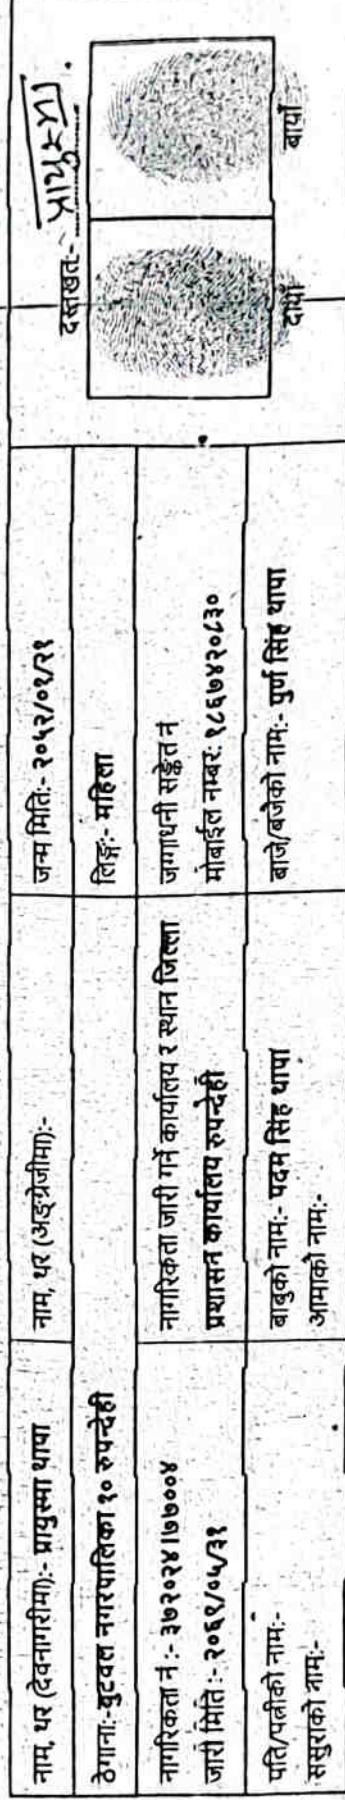 नाम, थर (देवनागरीमा):- प्रायुस्मा थापा
नाम, थर (अङ्ग्रेजीमा):-
जन्म मिति:- २०५२/०१/२१
ठेगाना:-बुटवल नगरपालिका १० रुपन्देही
लिङ्ग:- महिला
नागरिकता नं :- ३७२०२४।७७००४
जारी मिति :- २०६९/०५/३१
नागरिकता जारी गर्ने कार्यालय र स्थान जिल्ला
प्रशासन कार्यालय रुपन्देही
जग्गाधनी सङ्केत नं
मोबाईल नम्बर: ९८६७४२०८३०
पति/पत्नीको नाम:-
ससुराको नाम:-
बाबुको नाम:- पदम सिंह थापा
आमाको नाम:-
बाजे/बजेको नाम:- पुर्ण सिंह थापा
दस्तखत:- प्रायुस्मा
दायाँ
बायाँ